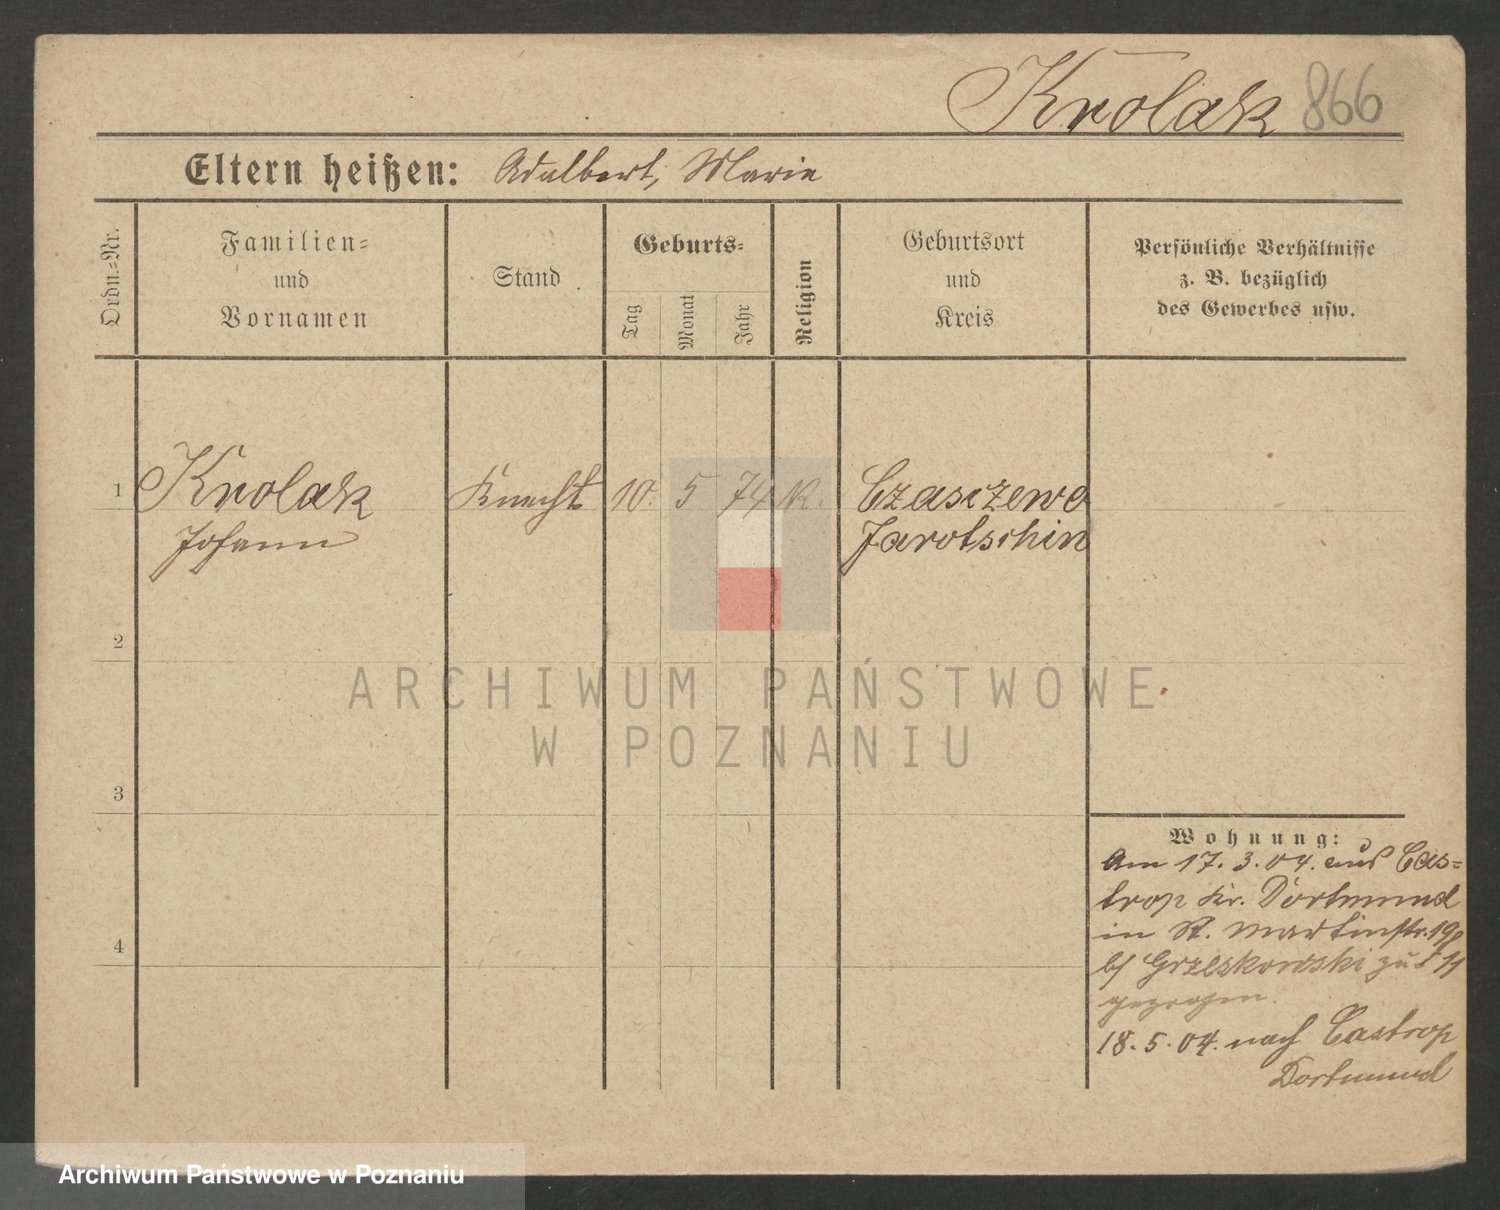 Krolak 866
Eltern heißen: Adalbert, Marie
Ordn.-Nr.
Familien-
und
Vornamen
Stand
Geburts-
Tag
Monat
Jahr
Religion
Geburtsort
und
Kreis
Persönliche Verhältnisse
z. B. bezüglich
des Gewerbes usw.
1 Krolak Knecht 10. 5 74 K. Czasczewo
Johann Jarotschin
2
3
4
ARCHIWUM PAŃSTWOWE
W POZNANIU
Wohnung:
Am 17. 3. 04. aus Cas-
trop Kr. Dortmund
in St. Martinstr. 19
b/ Grzeskowski zu
gezogen.
18. 5. 04. nach Castrop
Dortmund
Archiwum Państwowe w Poznaniu